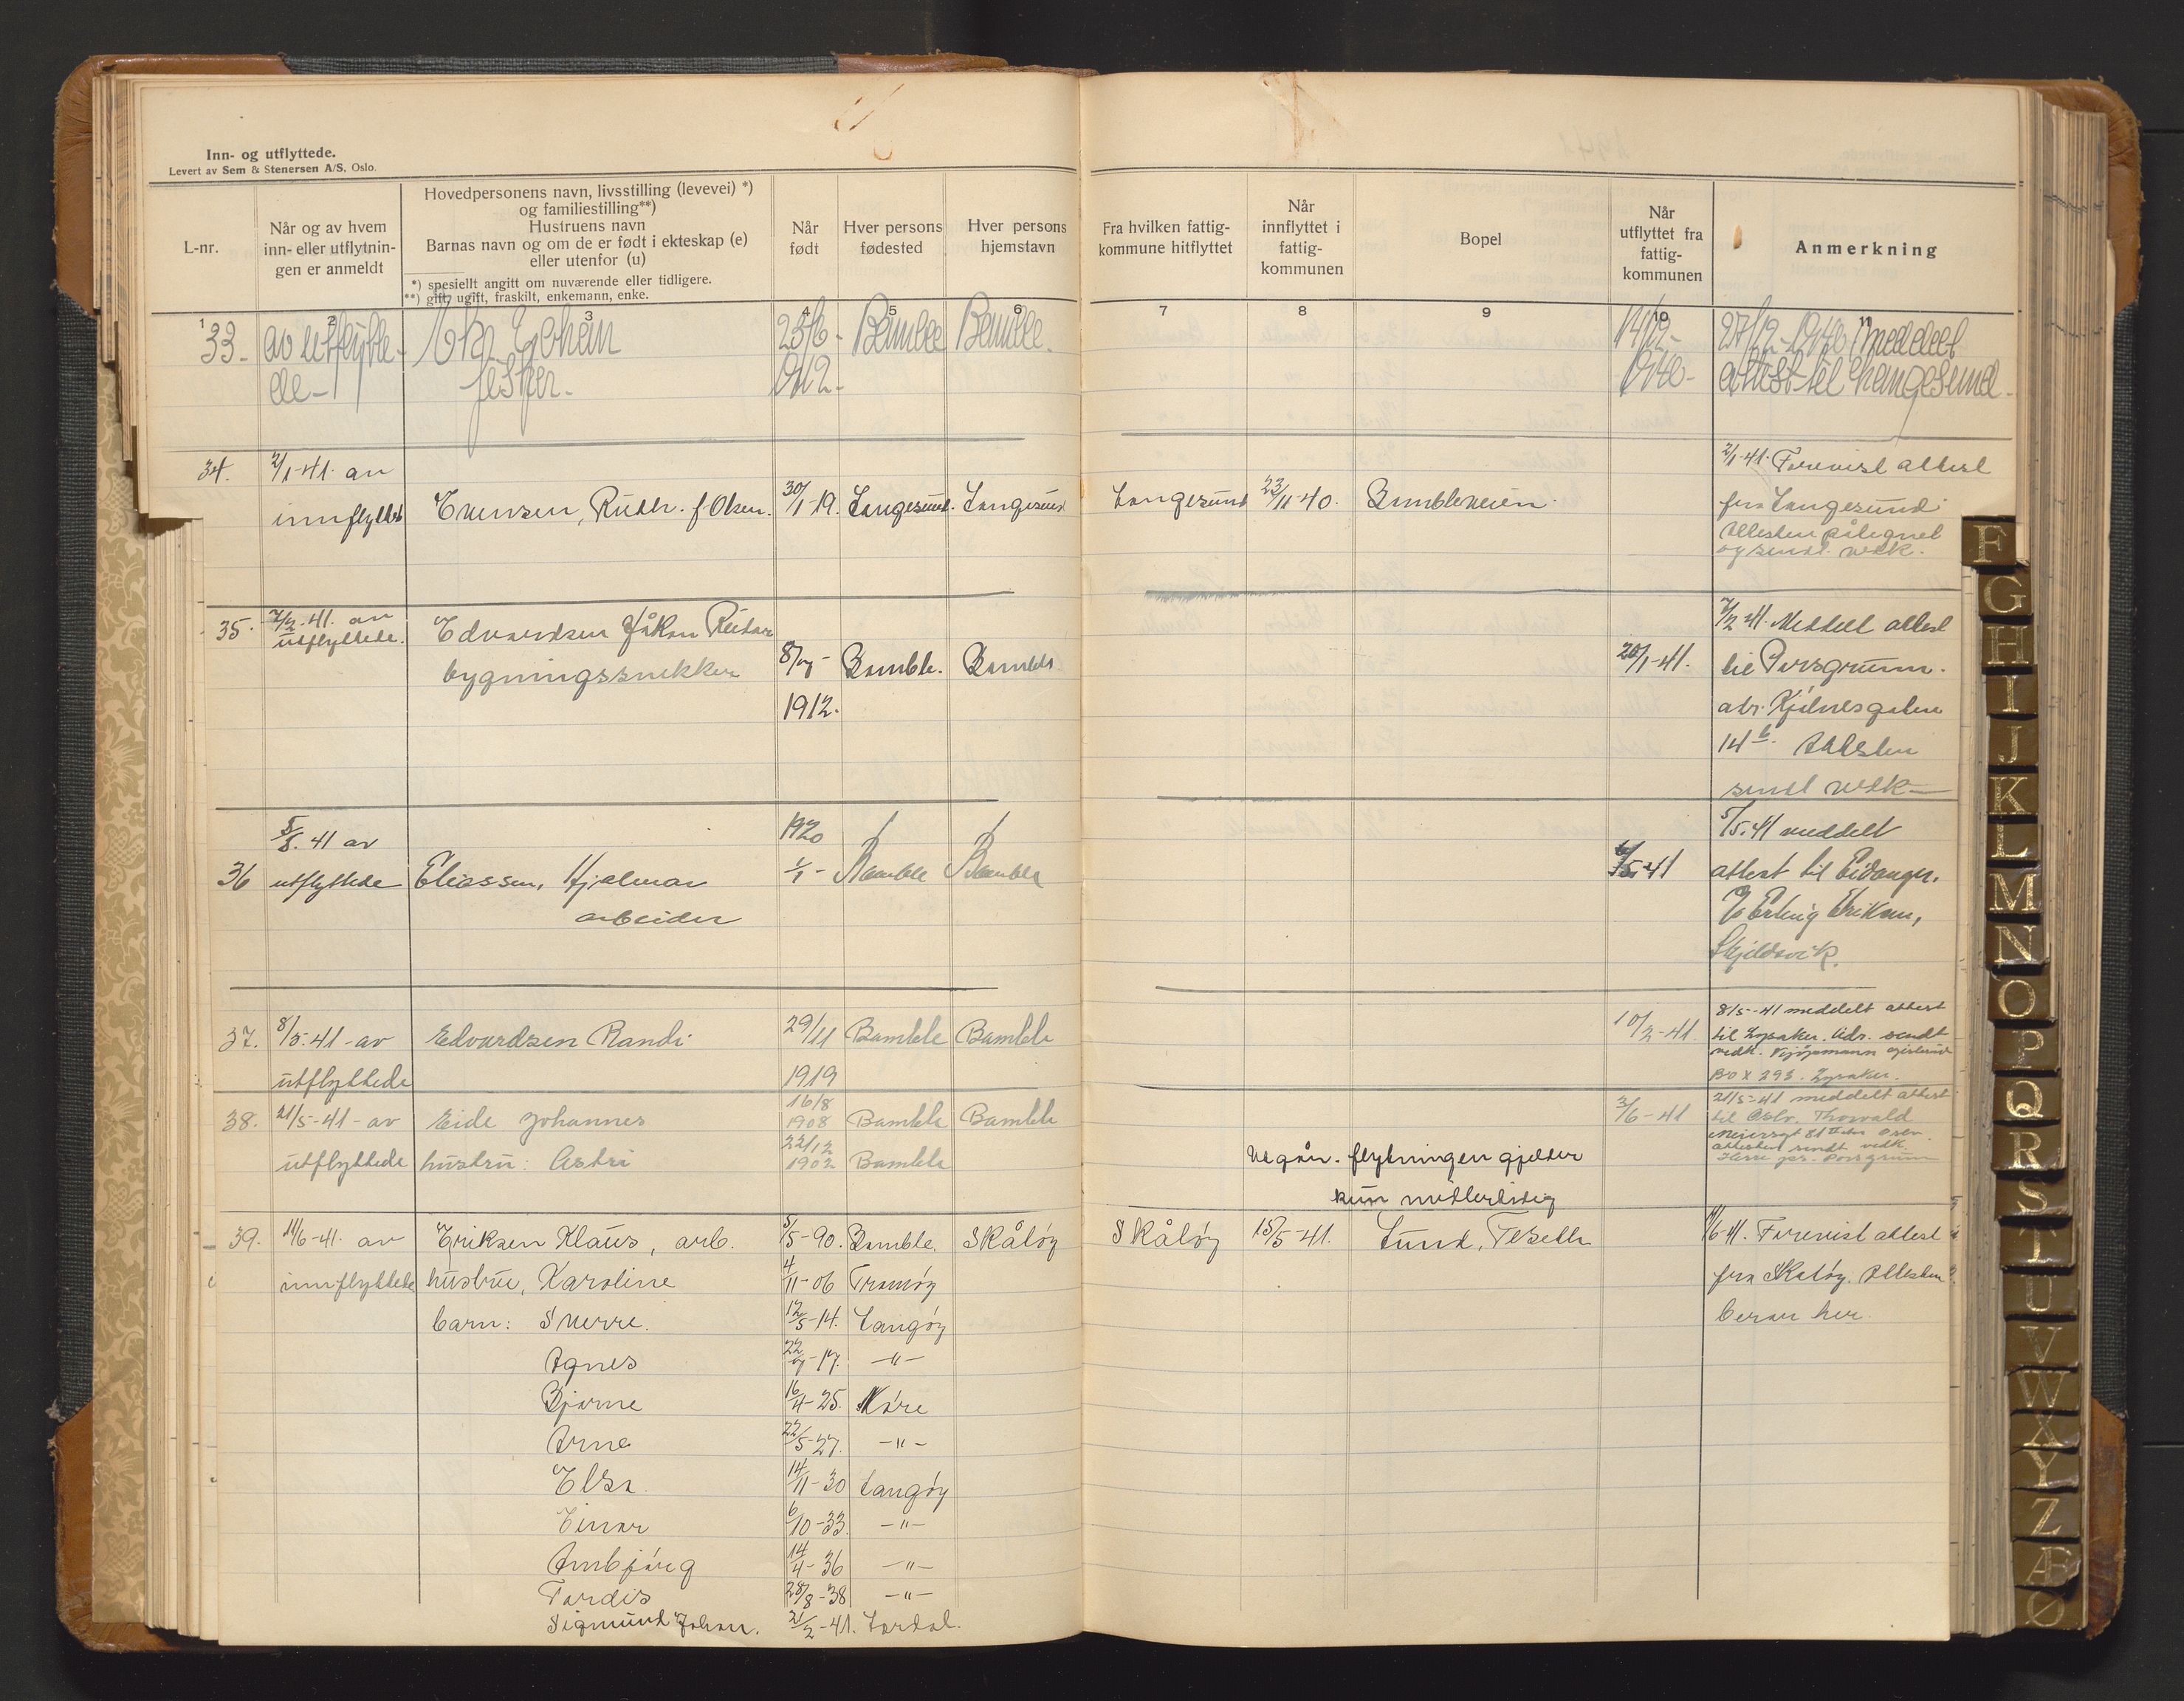 Inn- og utflyttede.
Levert av Sem & Stenersen A/S, Oslo.
L-nr.
Når og av hvem
inn- eller utflytnin-
gen er anmeldt
Hovedpersonens navn, livsstilling (levevei) *)
og familiestilling**)
Hustruens navn
Barnas navn og om de er født i ekteskap (e)
eller utenfor (u)
*) spesiellt angitt om nuværende eller tidligere.
**) gift, ugift, fraskilt, enkemann, enke.
Når
født
Hver persons
fødested
Hver persons
hjemstavn
Fra hvilken fattig-
kommune hitflyttet
Når
innflyttet i
fattig-
kommunen
Bopel
Når
utflyttet fra
fattig-
kommunen
Anmerkning
1 2 3 4 5 6 7 8 9 10 11
33- av utflytte- Johan 23/6- Bamble Bamble. 14/12- 27/12-1940 meddelt
de- fisker- 1912- 1940- attest til Langesund-
34. 2/1-41. av 2/1-41. Forevist attest
innflyttet Evensen, Ruth. f. Olsen. 30/1-19. Langesund. Langesund Langesund 23/11-40. Bambleveien. fra Langesund
Attesten påtegnet
og sendt vedk.
35. 7/2-41. av Edvardsen Håkon Reidar 7/2 41. Meddelt attest
utflyttede.
bygningssnekker 8/7- Bamble. Bamble 20/1-41. til Porsgrunn.
1912. adr. Kjølnesgaten
14b. Attesten
sendt vedk-
5/5. 41 av 1920 5/5.41 meddelt
36 utflyttede Eliassen, Hjalmar 1/1- Bamble Bamble 5-41 attest til Eidanger.
arbeider % Erling Eriksen,
Skjeldsvik.
37. 8/5.41-av Edvardsen Randi 29/11 Bamble Bamble 10/2-41 8/5-41 meddelt attest
til Lysaker. sendt
vedk.
utflyttede 1919 Box 293. Lysaker.
38. 21/5-41-av Eide Johannes 16/8 1908 Bamble Bamble 3/6-41 21/5-41 meddelt attest
til Oslo. Thorvald
Meiersgt 81 Oslo.
utflyttede hustru: Astri 22/12 1902 Bamble attesten sendt vedk.
Herre pr. Porsgrunn
Utgår. flytningen gjelder
kun midlertidig
39. 11/6-41. av Eriksen Klaus, arb. 5/5-90. Bamble. Skåtøy Skåtøy 15/5-41. Lund, 11/6-41. Forevist attest
innflyttede hustru, Karoline 4/11-06 Tromøy fra Skåtøy. Attesten
barn: Sverre. 12/5-14. Langøy beror her
Agnes 22/7-17. -"-
Bjarne 16/4-25. Kåre
Arne 22/5-27. -"-
Elsa. 14/11-30 Langøy
Einar 6/10-33. -"-
Arnbjørg 14/4-36 -"-
Tordis 28/8-38 -"-
Sigmund Johan. 21/2-41. Tordal.
F
G
H
I
J
K
L
M
N
O
P
Q
R
S
T
U
V
W
X
Y
Z
Æ
Ø